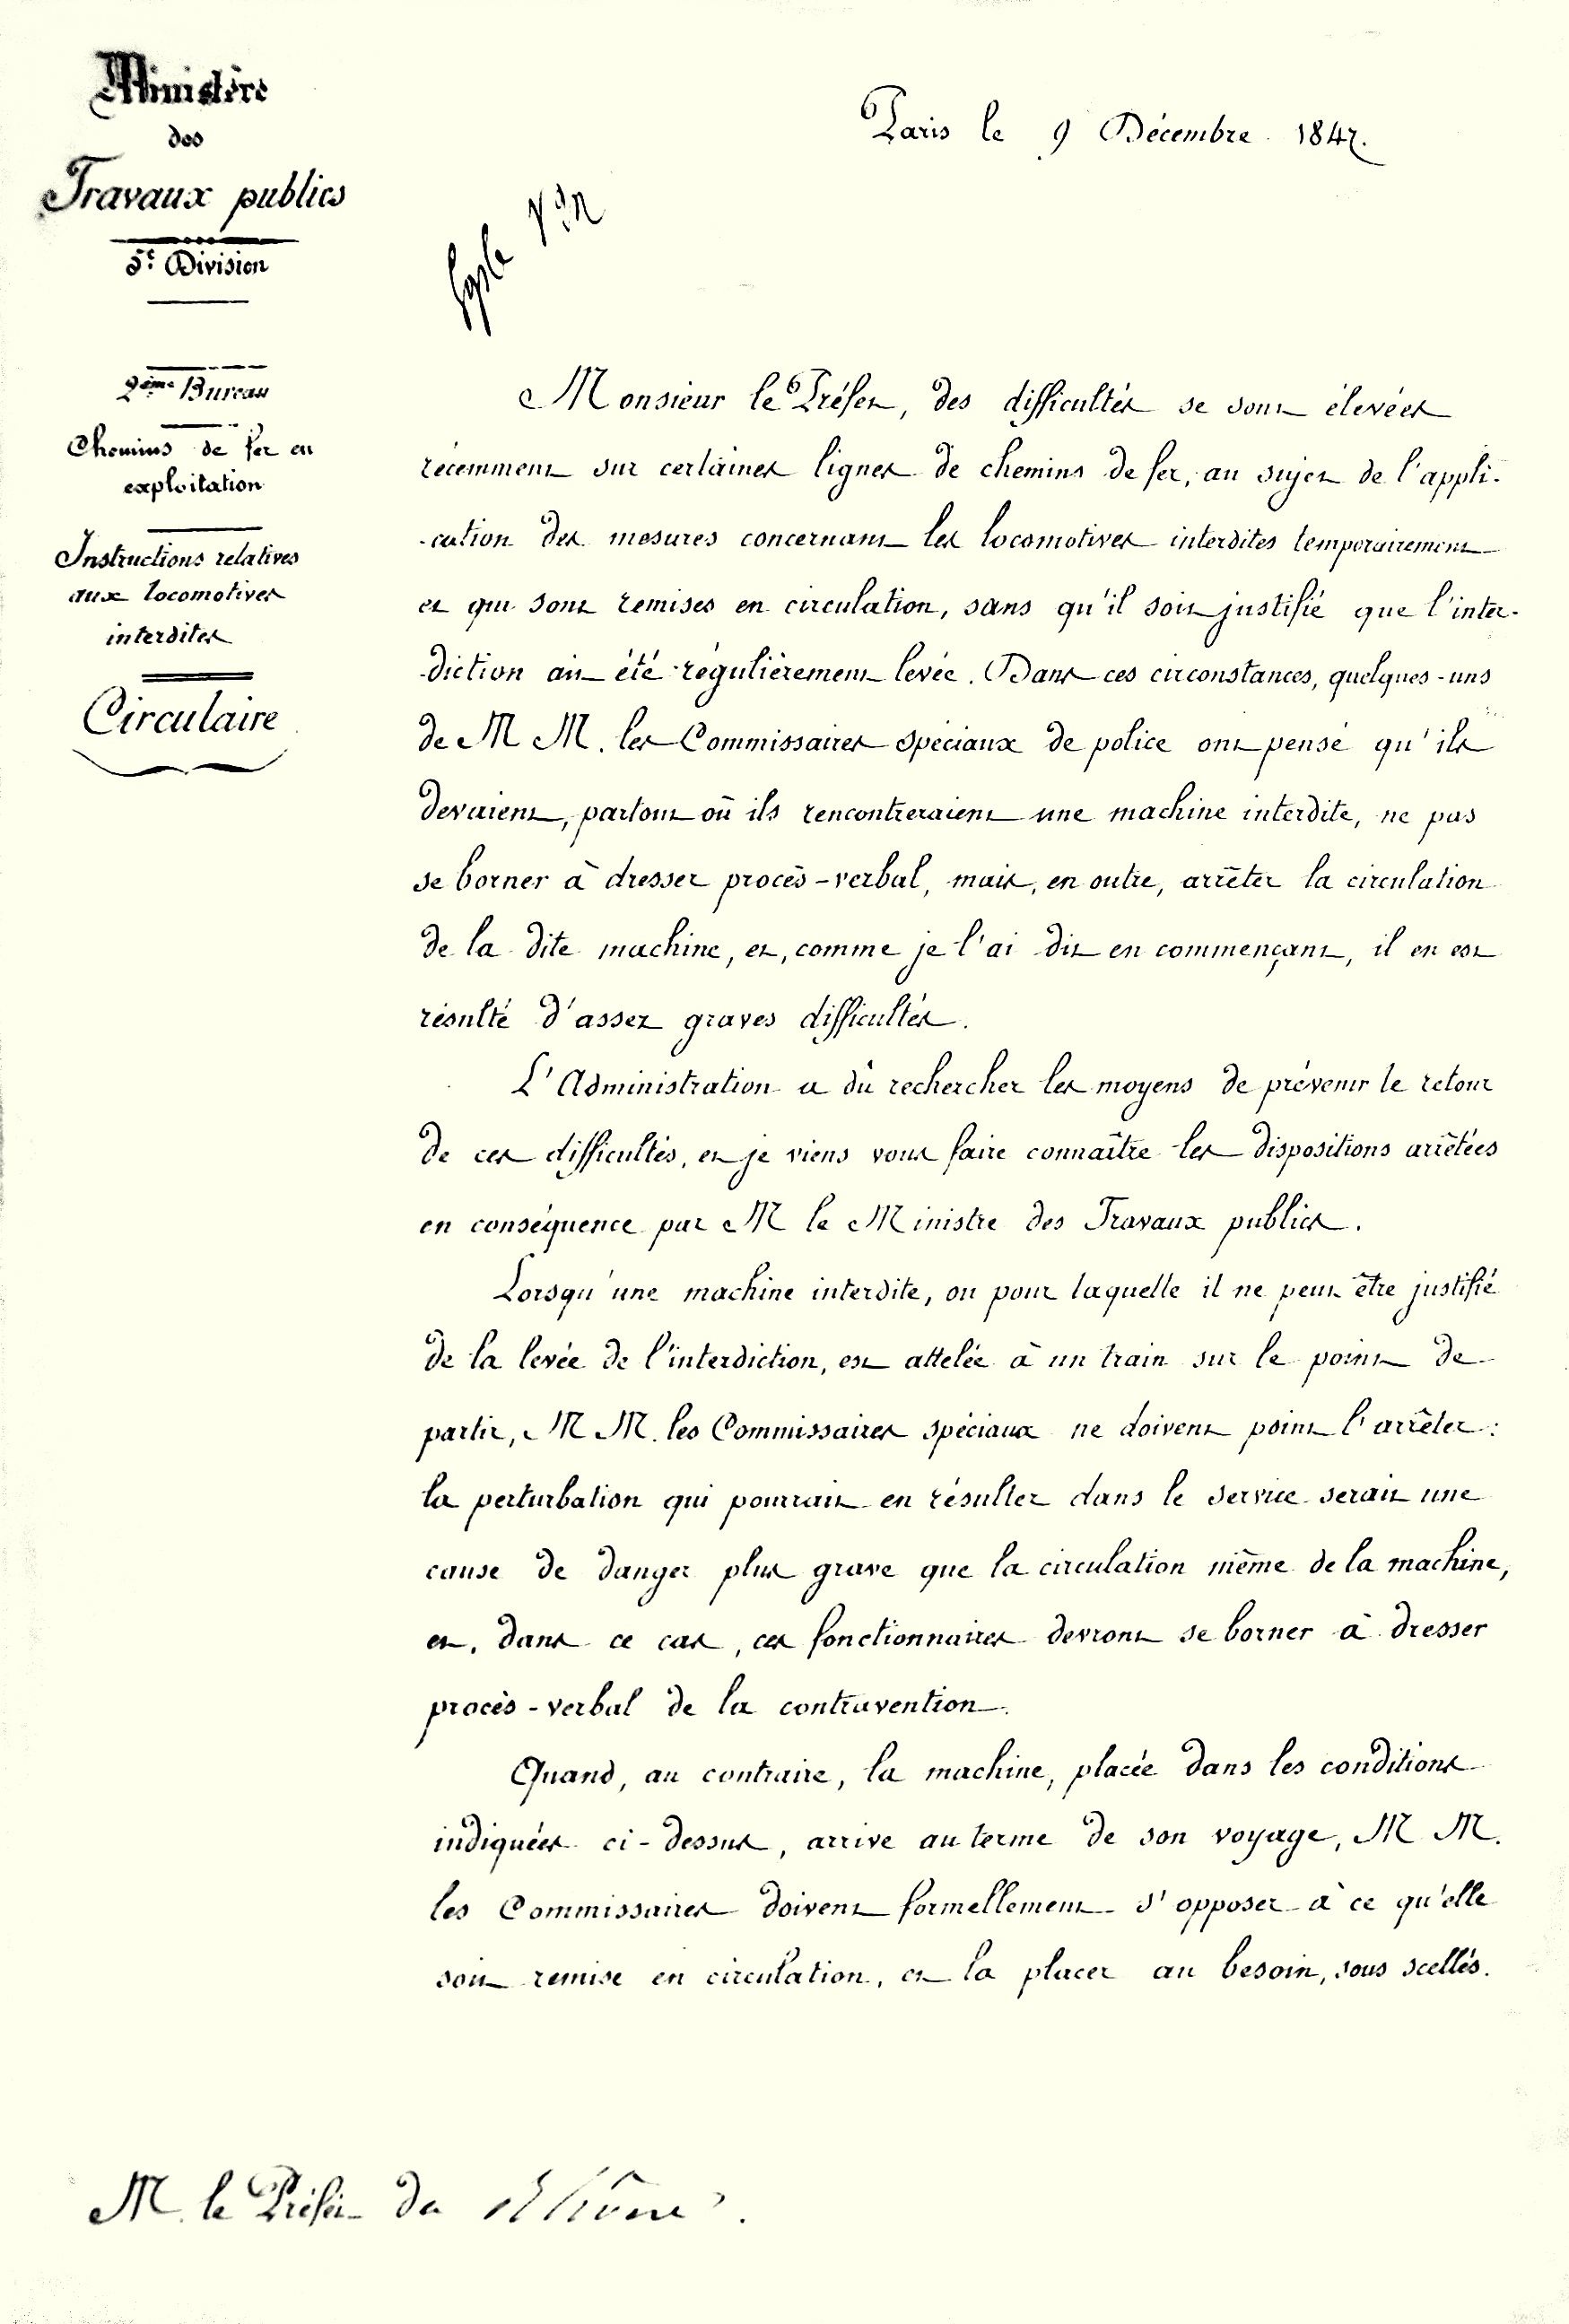 Ministère
des
Travaux publics
5e Division
2ème Bureau
Chemins de fer en
exploitation
Instructions relatives
aux locomotives
interdites
Circulaire
Paris le 9 Décembre 1847.
Monsieur le Préfet, des difficultés se sont élevées
récemment sur certaines lignes de chemins de fer, au sujet de l'appli-
-cation des mesures concernant les locomotives interdites temporairement
et qui sont remises en circulation, sans qu'il soit justifié que l'inter-
-diction ait été régulièrement levée. Dans ces circonstances, quelques-uns
de M M. les Commissaires spéciaux de police ont pensé qu'ils
devaient, partout où ils rencontreraient une machine interdite, ne pas
se borner à dresser procès-verbal, mais, en outre, arrêter la circulation
de la dite machine, et, comme je l'ai dit en commençant, il en est
résulté d'assez graves difficultés.
L'Administration a dû rechercher les moyens de prévenir le retour
de ces difficultés, et je viens vous faire connaître les dispositions arrêtées
en conséquence par M le Ministre des Travaux publics.
Lorsqu'une machine interdite, ou pour laquelle il ne peut être justifié
de la levée de l'interdiction, est attelée à un train sur le point de
partir, M M. les Commissaires spéciaux ne doivent point l'arrêter:
la perturbation qui pourrait en résulter dans le service serait une
cause de danger plus grave que la circulation même de la machine,
et, dans ce cas, ces fonctionnaires devront se borner à dresser
procès-verbal de la contravention.
Quand, au contraire, la machine, placée dans les conditions
indiquées ci-dessus, arrive au terme de son voyage, M M.
les Commissaires doivent formellement s'opposer à ce qu'elle
soit remise en circulation, et la placer au besoin, sous scellés.
M. le Préfet du Rhône.